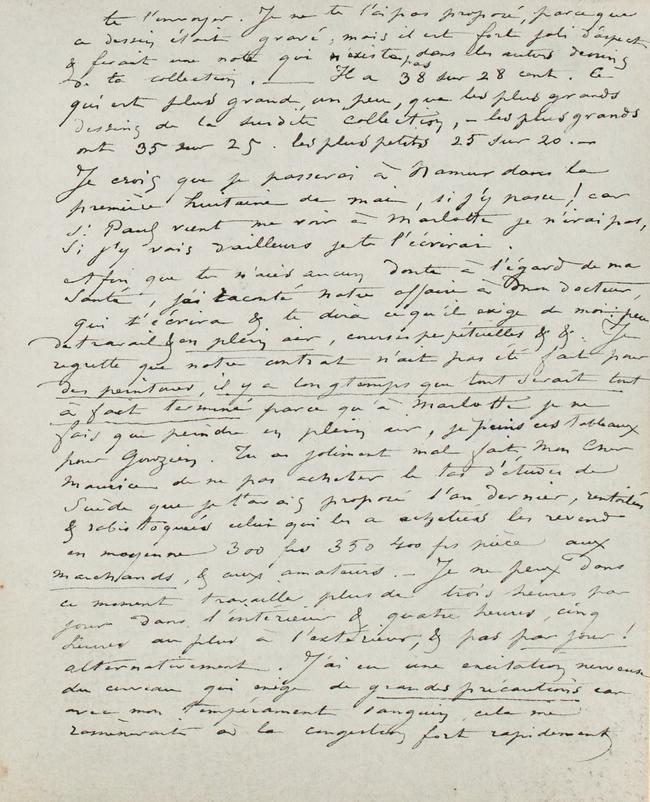 te l'envoyer. Je ne te l'ai pas proposé, parceque
ce dessin était gravé, mais il est fort joli d'aspect
& ferait une note qui n'existe pas dans les autres dessins
de ta collection. — Il a 38 sur 28 cent. Ce
qui est plus grand, un peu, que les plus grands
dessins de la susdite collection, — les plus grands
ont 35 sur 25. les plus petits 25 sur 20. —
Je crois que je passerai à Namur dans la
première huitaine de mai, si j'y passe! car
si Paul vient me voir à Marlotte je n'irai pas,
Si j'y vais d'ailleurs je te l'écrirai.
Afin que tu n'aies aucun doute à l'égard de ma
Santé, j'ai raconté notre affaire à mon docteur,
qui t'écrira & te dira ce qu'il exige de moi: peu
de travail & en plein air, courses perpétuelles & &. Je
regrette que notre contrat n'ait pas été fait pour
des peintures, il y a longtemps que tout serait tout
à fait terminé parce qu'à Marlotte je ne
fais que peindre en plein air, je peins ces tableaux
pour Gouzien. Tu as joliment mal fait, Mon Cher
Maurice de ne pas acheter le tas d'études de
Suède que je t'avais proposé l'an dernier, rentoilés
& rabistoqués celui qui les a achetées les revend
en moyenne 300 frs 350 400 frs pièce aux
marchands, & aux amateurs. — Je ne peux dans
ce moment travailler plus de trois heures par
jour dans l'intérieur & quatre heures, cinq
heures au plus à l'extérieur, & pas par jour!
alternativement. J'ai eu une excitation nerveuse
du cerveau qui exige de grandes précautions car
avec mon tempérament sanguin, cela me
ramènerait à la congestion fort rapidement